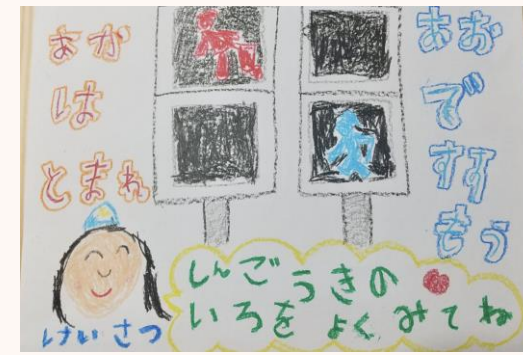 あか
は
とまれ
あお
で
すす
もう
けいさつ
しんごうきの
いろをよくみてね